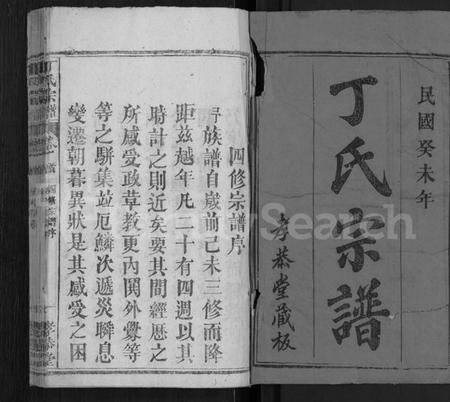 民國癸未年
丁氏宗譜
孝恭堂藏板
四修宗譜序
吾族譜自歲前己未三修而降
距茲越年凡二十有四週以其
時計之則近矣要其間經歷之
所感受政草教更內鬨外釁等
等之騈集並厄鱗次遞災瞬息
變遷朝暮異狀是其感受之困
丁氏宗譜
FamilySearch